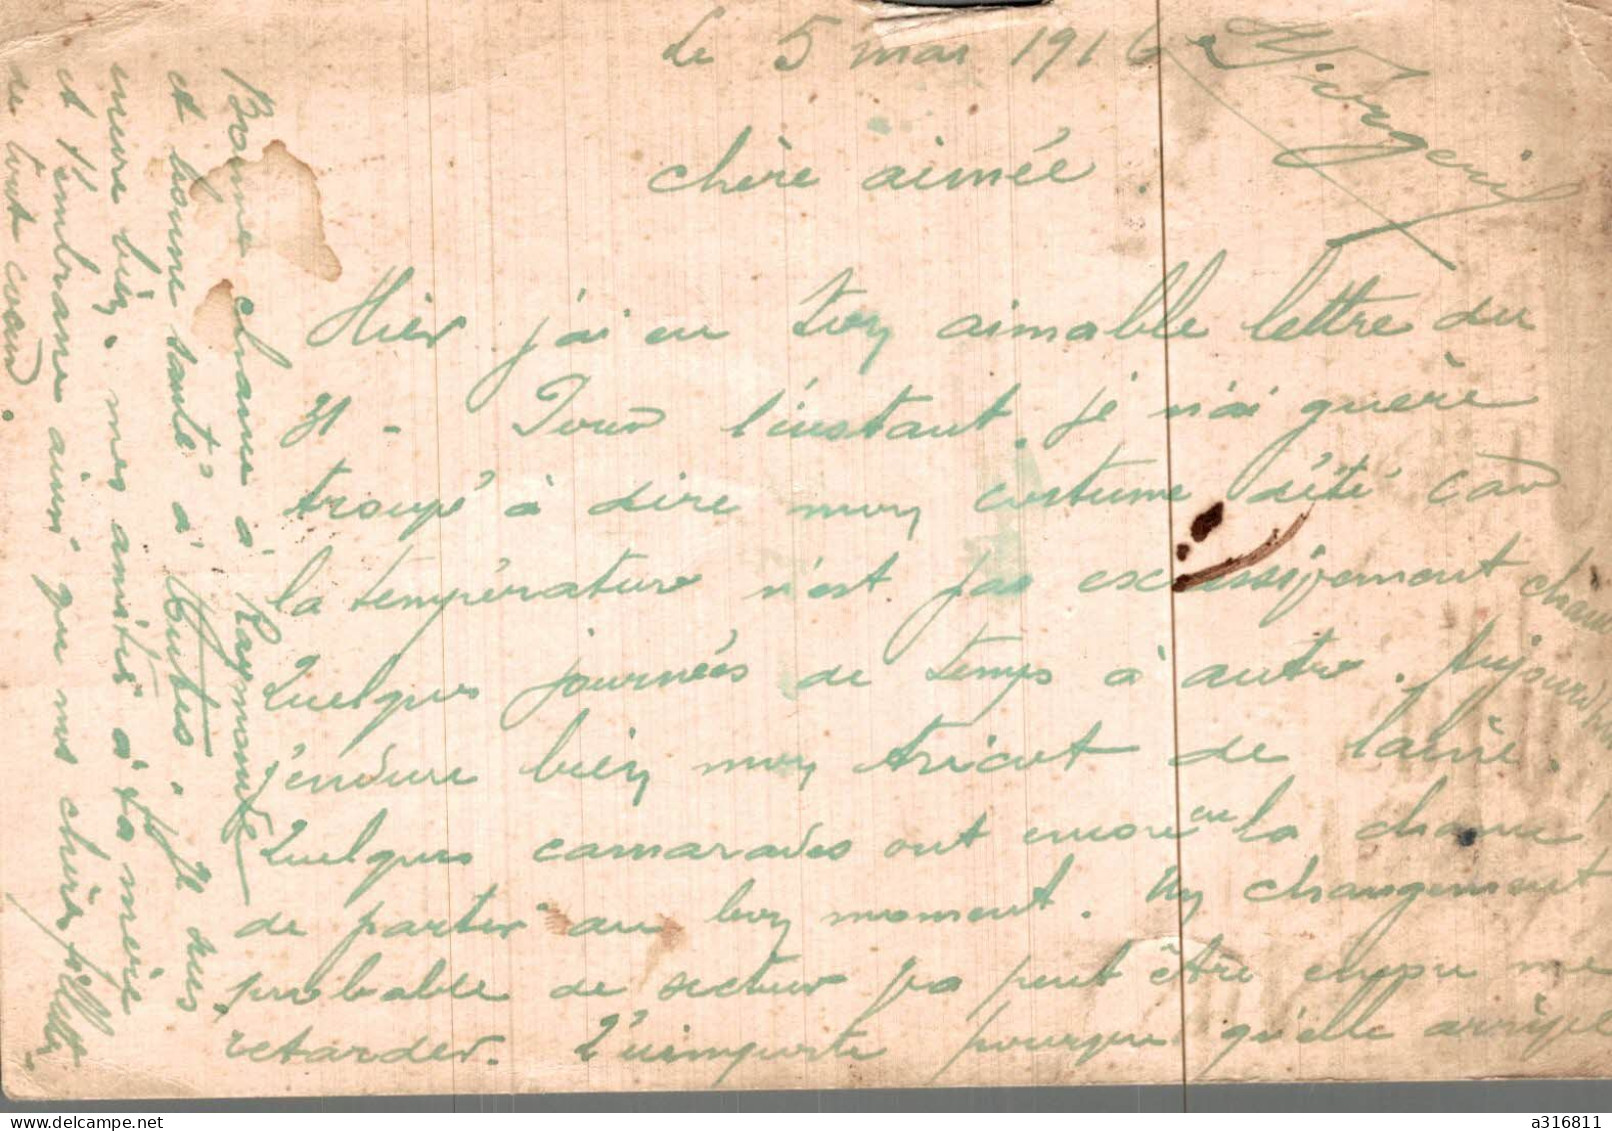 Le 5 mai 1916
Chère aimée.
Hier j'ai eu ton aimable lettre du
31 - Pour l'instant je n'ai guère
troupé à dire mon costume d'été car
la température n'est pas excessivement chaude
Quelques journées de temps à autre. Aujourd'hui
j'endure bien mon tricot de laine.
Quelques camarades ont encore eu la chance
de partir au bon moment. Un changement
probable de secteur va peut être encore me
retarder. N'importe pourvu qu'elle arrive
Bonne chance à Raymonde
et bonne santé à toutes. Je suis
mes amitiés à ta mère
et t'embrasse ainsi que mes chères fillettes
de tout cœur.
delcampe.net
a316811